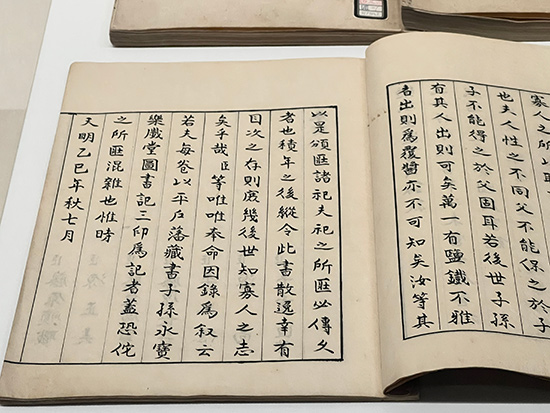 寡人之所以
也夫人性之不同父不能保之於子
子不能得之於父固耳若後世子孫
有其人出則可矣萬一有鹽鐵不雅
者出則爲覆醬亦不可知矣汝等其
以是頌匪諸祀夫祀之所匪必傳久
者也積年之後縱令此書散逸幸有
目次之存則庶幾後世知寡人之志
矣乎哉臣等唯唯奉命因錄爲叙云
若夫每卷以平戶藩藏書子孫永寶
樂歲堂圖書記三印爲記者蓋恐佗
之所匪混雜也惟時
天明乙巳年秋七月